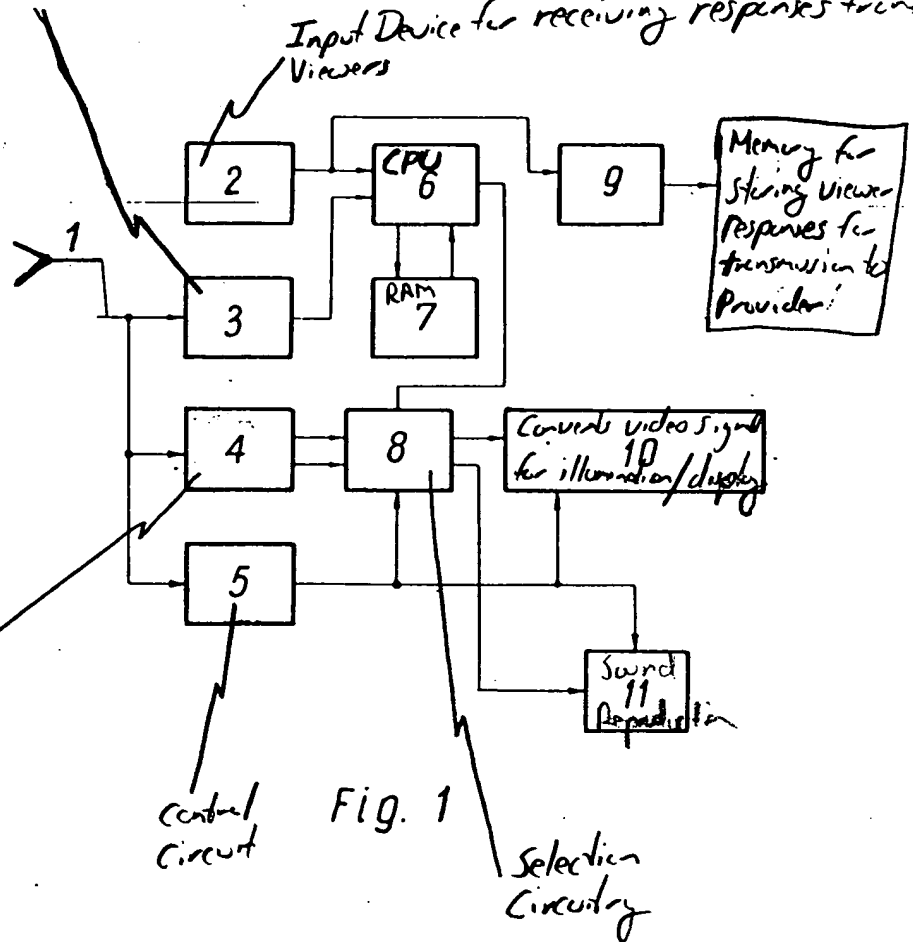 Input Device for receiving responses from
Viewers
1
2
CPU
6
9
Memory for
storing viewer
responses for
transmission to
Provider
3
RAM
7
4
8
Converts video signal
10
for illumination/display
5
Sound
11
Reproduction
Control
Circuit
Fig. 1
Selection
Circuitry